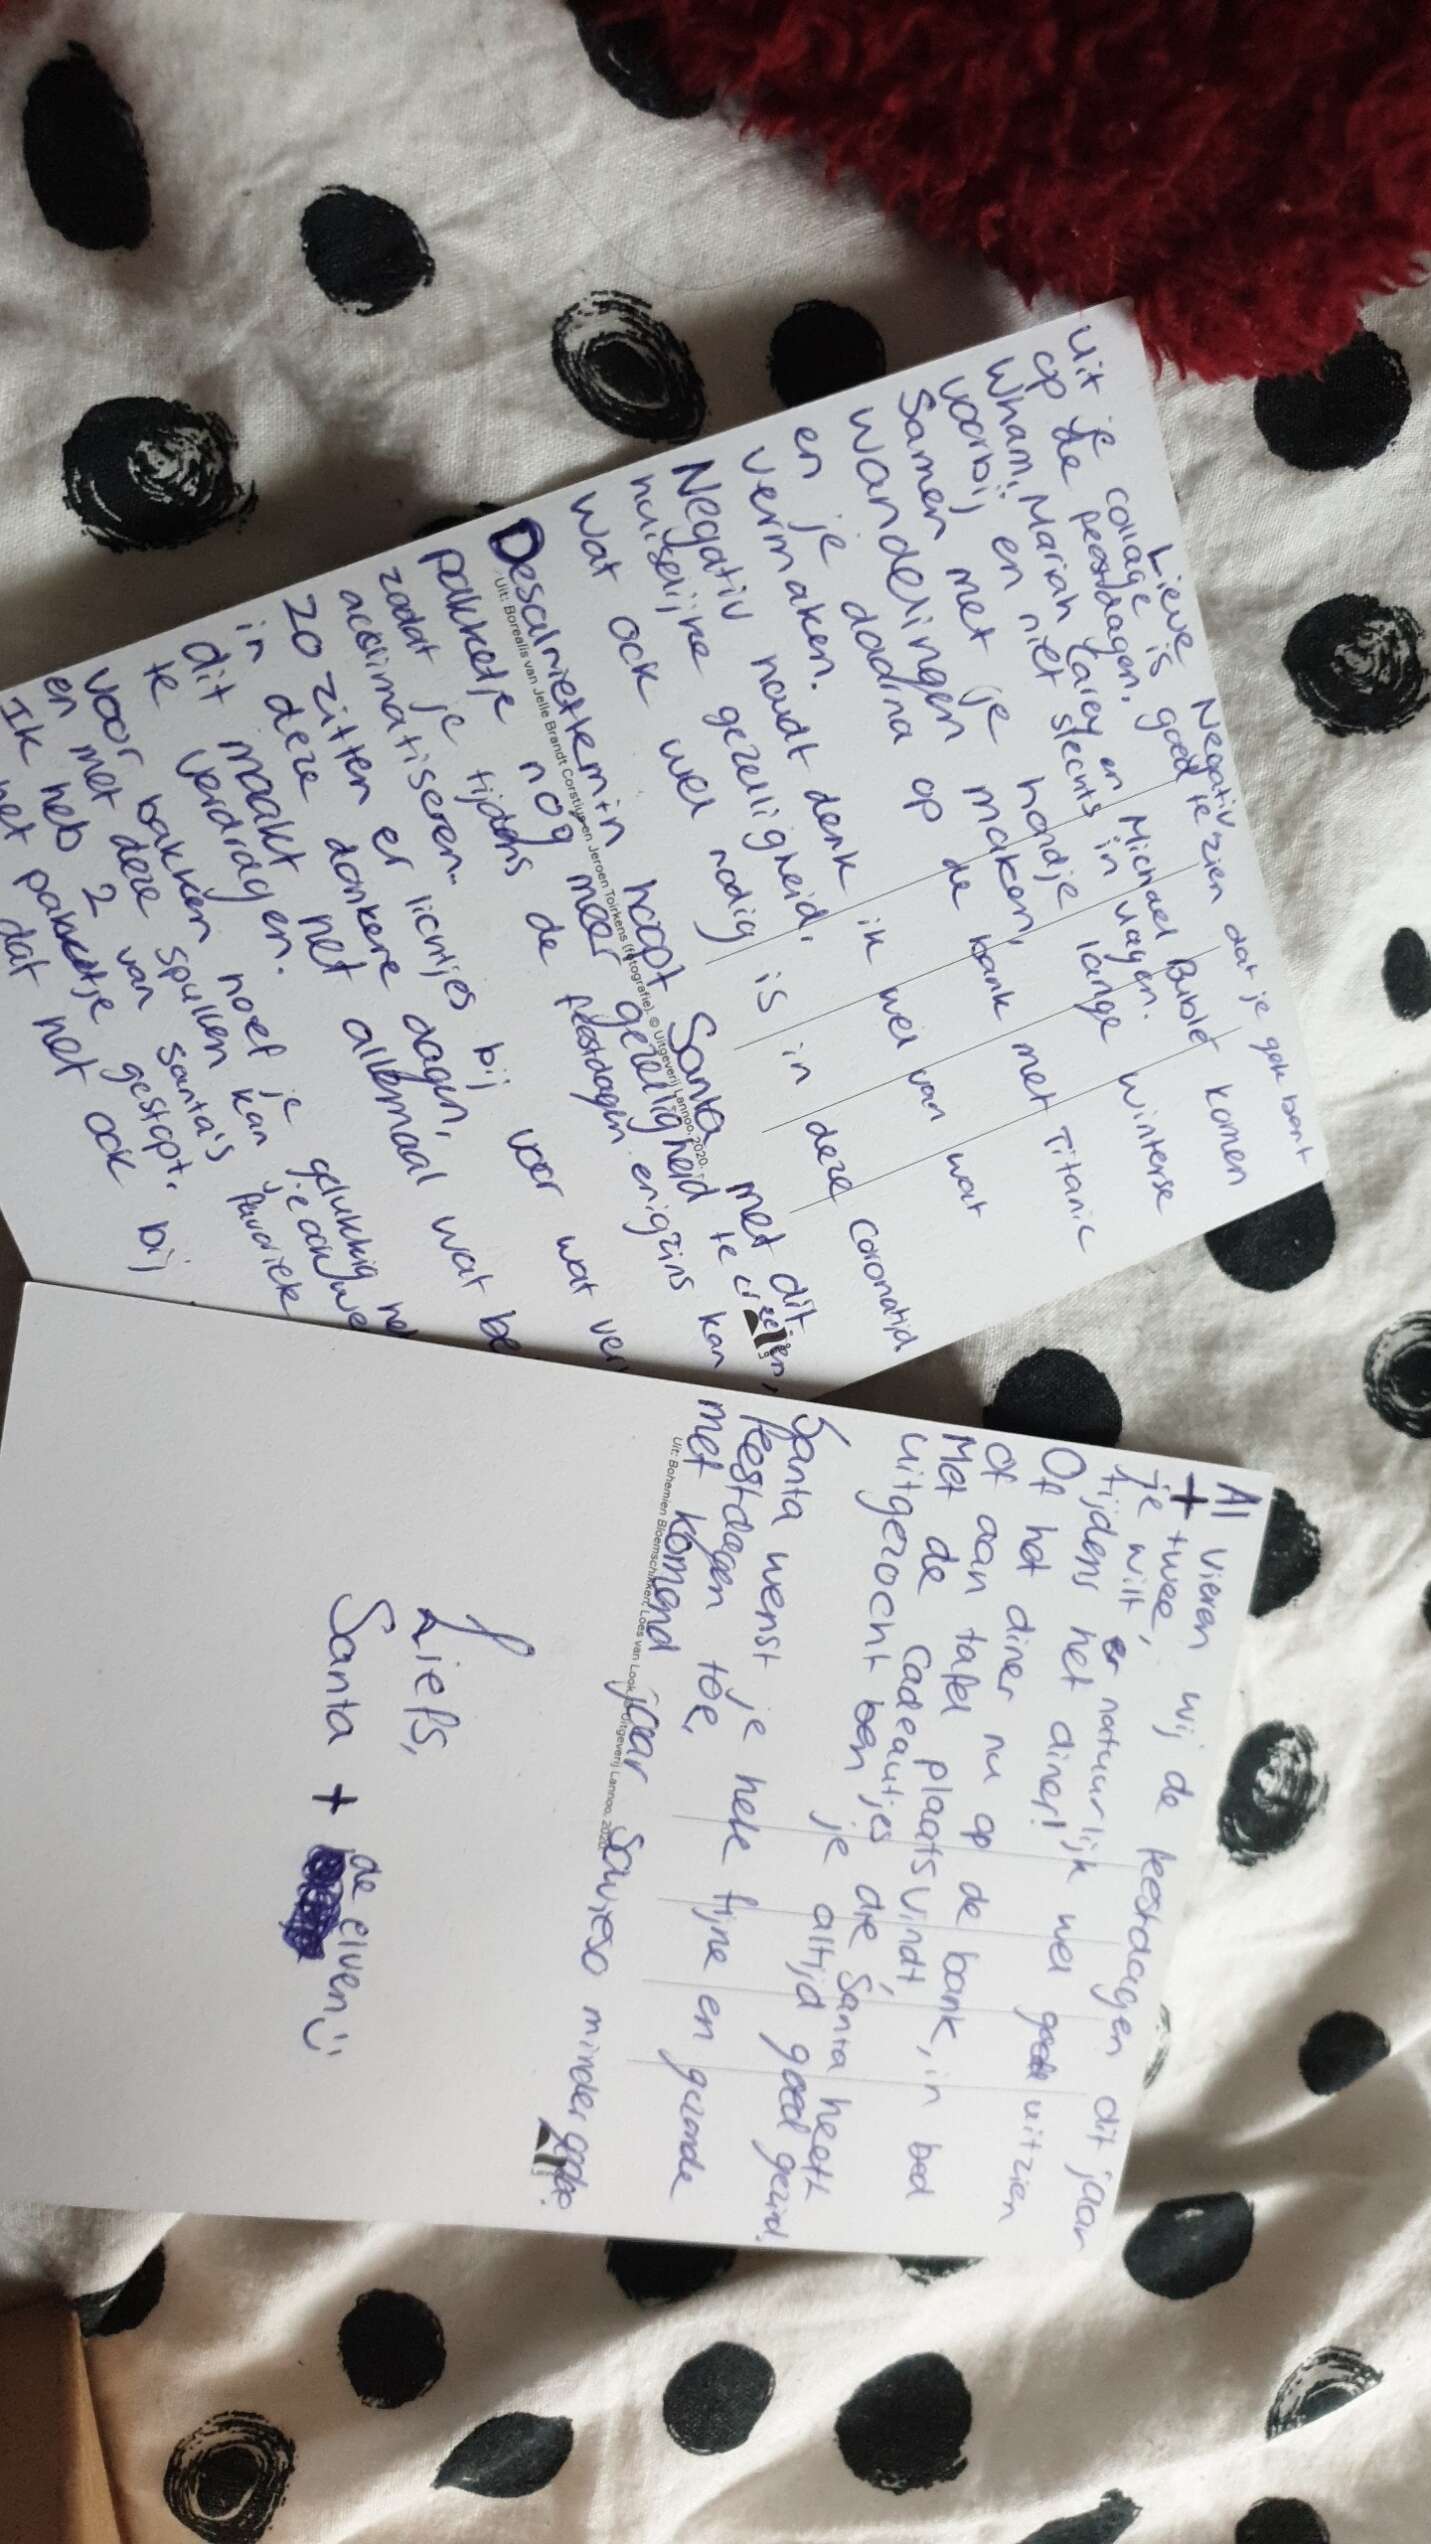 Lieve Negativ,
uit je collage is goed te zien dat je gek bent
op de feestdagen.
Wham, Mariah Carey en Michael Bublé komen
voorbij en niet slechts in vlagen.
Samen met je hondje lange winterse
wandelingen maken,
en je daarna op de bank met Titanic
vermaken.
Negativ houdt denk ik wel van wat
huiselijke gezelligheid,
wat ook wel nodig is in deze coronatijd
Desalniettemin hoopt Santa met dit
Uit: Borealis van Jelle Brandt Corstius en Jeroen Toirkens (fotografie). © Uitgeverij Lannoo, 2020.
pakketje nog meer gezelligheid te
zodat je tijdens de feestdagen enigzins kan
acclimatiseren.
Zo zitten er lichtjes bij voor wat
in deze donkere dagen,
dit maakt het allemaal wat
te verdragen.
Voor bakken hoef je gelukkig
en met deze spullen kan je
Ik heb 2 van Santa's favoriete
pakketje gestopt,
dat het ook bij
Al vieren wij de feestdagen dit jaar
+ twee,
je wilt er natuurlijk wel goed uitzien
tijdens het diner!
Of het diner nu op de bank, in bed
of aan tafel plaatsvindt,
Met de cadeautjes die Santa heeft
uitgezocht ben je altijd goed gezind.
Santa wenst je hele fijne en gezonde
feestdagen toe,
met komend jaar sowieso minder gedoe.
Uit: Bohemien Bloemschikken, Loes van Look. © Uitgeverij Lannoo, 2020
Liefs,
Santa + de elven :)